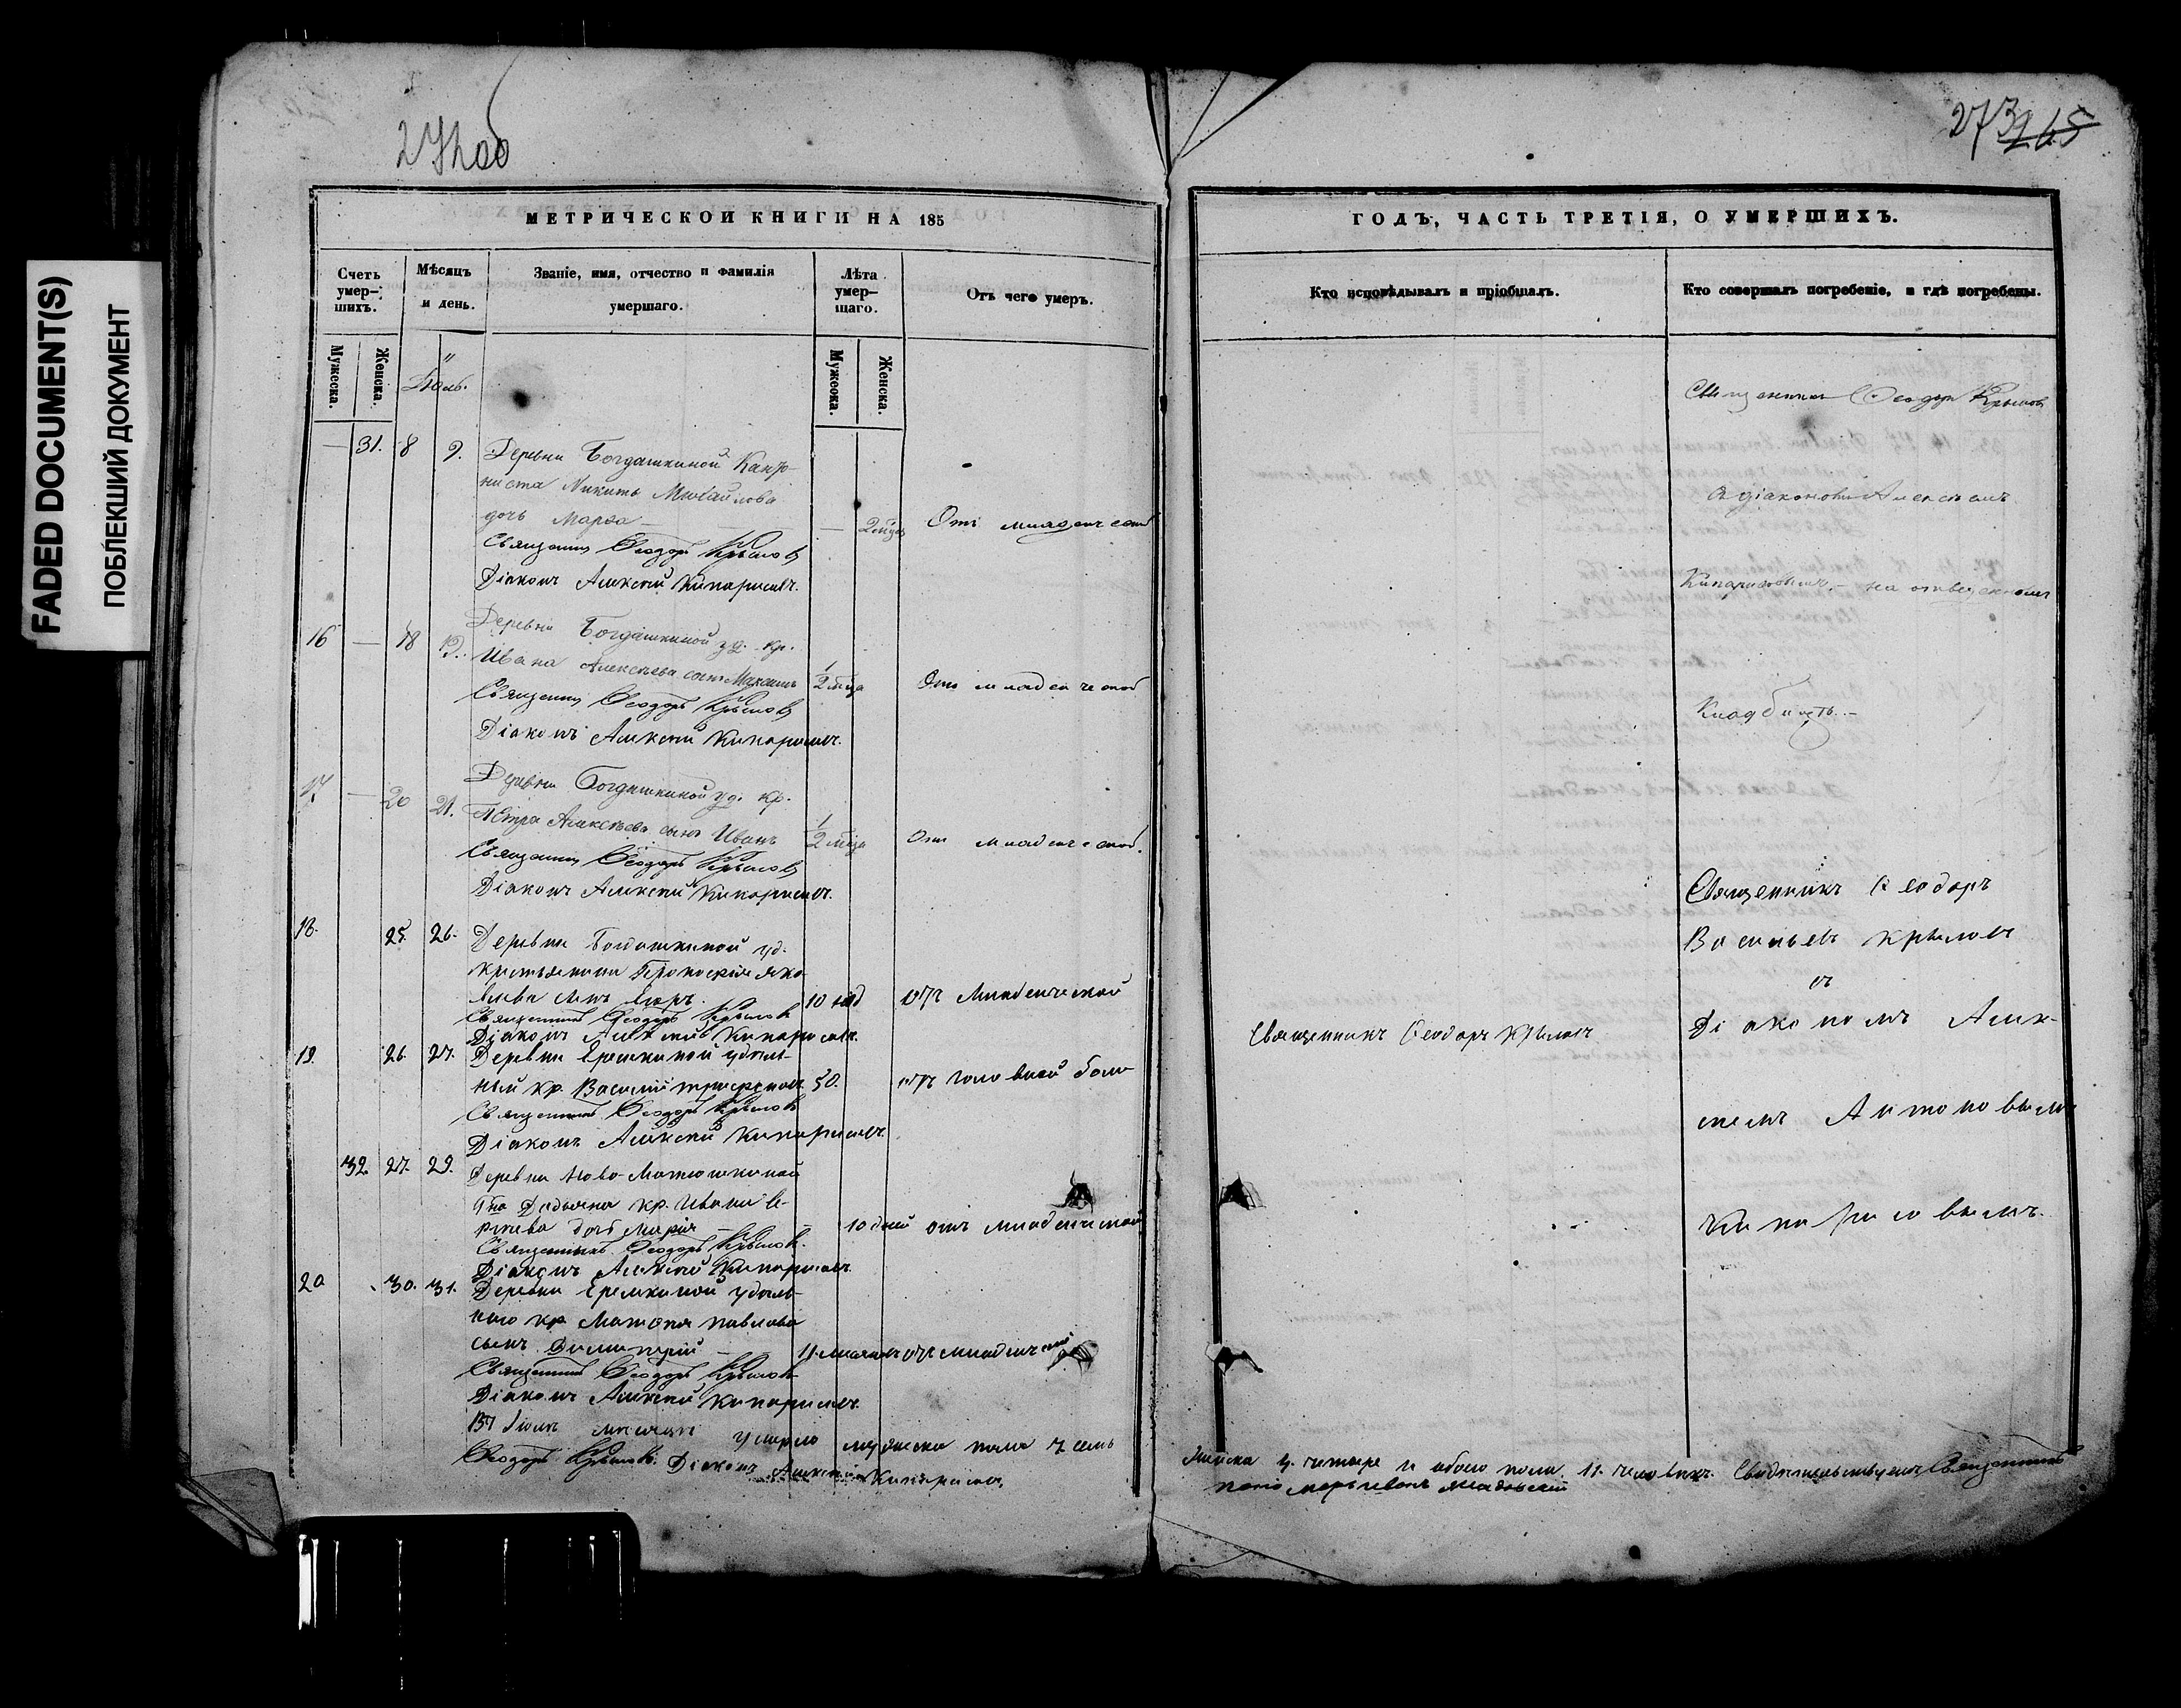 FADED DOCUMENT(S)
ПОБЛЕКШИЙ ДОКУМЕНТ
273 265
МЕТРИЧЕСКОЙ КНИГИ НА 185
ГОДЪ, ЧАСТЬ ТРЕТІЯ, О УМЕРШИХЪ.
Счетъ умер-шихъ.
Мѣсяцъ и день.
Званіе, имя, отчество и фамилія умершаго.
Лѣта умер-шаго.
Отъ чего умеръ.
Кто исповѣдывалъ и пріобщалъ.
Кто совершалъ погребеніе, и гдѣ погребены.
Мужеска. Женска.
Мужеска. Женска.
Іюль.
— 31. 8 9. Деревни Богдашкиной Кант-
ниста Никиты Михайлова
дочь Марѳа — — 2 мѣс Отъ младенческой
Священникъ Ѳеодоръ Крыловъ
Діаконъ Алексій Кипарисовъ.
16 — 18 19. Деревни Богдашкиной уд. кр.
Ивана Алексѣева сынъ Максимъ 1/2 мѣсца Отъ младенческой
Священникъ Ѳеодоръ Крыловъ
Діаконъ Алексій Кипарисовъ.
17 — 20 21. Деревни Богдашкиной уд. кр.
Петра Алексѣева сынъ Иванъ 1/2 мѣсца Отъ младенческой.
Священникъ Ѳеодоръ Крыловъ
Діаконъ Алексій Кипарисовъ.
18. 25. 26. Деревни Богдашкиной уд.
крестьянина Прокопія Яко-
влева сынъ Егоръ. 10 нед отъ младенческой
Священникъ Ѳеодоръ Крыловъ
Діаконъ Алексій Кипарисовъ.
19. 26. 27. Деревни Еремкиной удѣль-
ный кр. Василій 50. отъ головной боли
Священникъ Ѳеодоръ Крыловъ
Діаконъ Алексій Кипарисовъ.
32. 27. 29. Деревни Ново-Матюшкиной
Гна Дадьяна кр. Ивана Се-
ргѣева дочь Марія — — 10 дней отъ младенческой
Священникъ Ѳеодоръ Крыловъ.
Діаконъ Алексій Кипарисовъ.
20 30. 31. Деревни Еремкиной удѣль-
наго кр. Матвѣя Павлова
сынъ Димитрій — 11. мѣсяцъ отъ младенческой
Священникъ Ѳеодоръ Крыловъ
Діаконъ Алексій Кипарисовъ.
Въ Іюлѣ мѣсяцѣ умерло мужеска пола 7 семь
Ѳеодоръ Крыловъ. Діаконъ Алексій Кипарисовъ.
Священникъ Ѳеодоръ Крыловъ
с діакономъ Алексѣемъ
Кипарисовымъ — на отведенномъ
Кладбищѣ. —
Священникъ Ѳеодоръ Крыловъ
Священникъ Ѳеодоръ
Васильевъ Крыловъ
съ
Діакономъ Алек-
сѣемъ Антоновымъ
Кипарисовымъ.
женска 4. четыре и обоего пола 11. человѣкъ. Свидѣтельствуемъ Священникъ